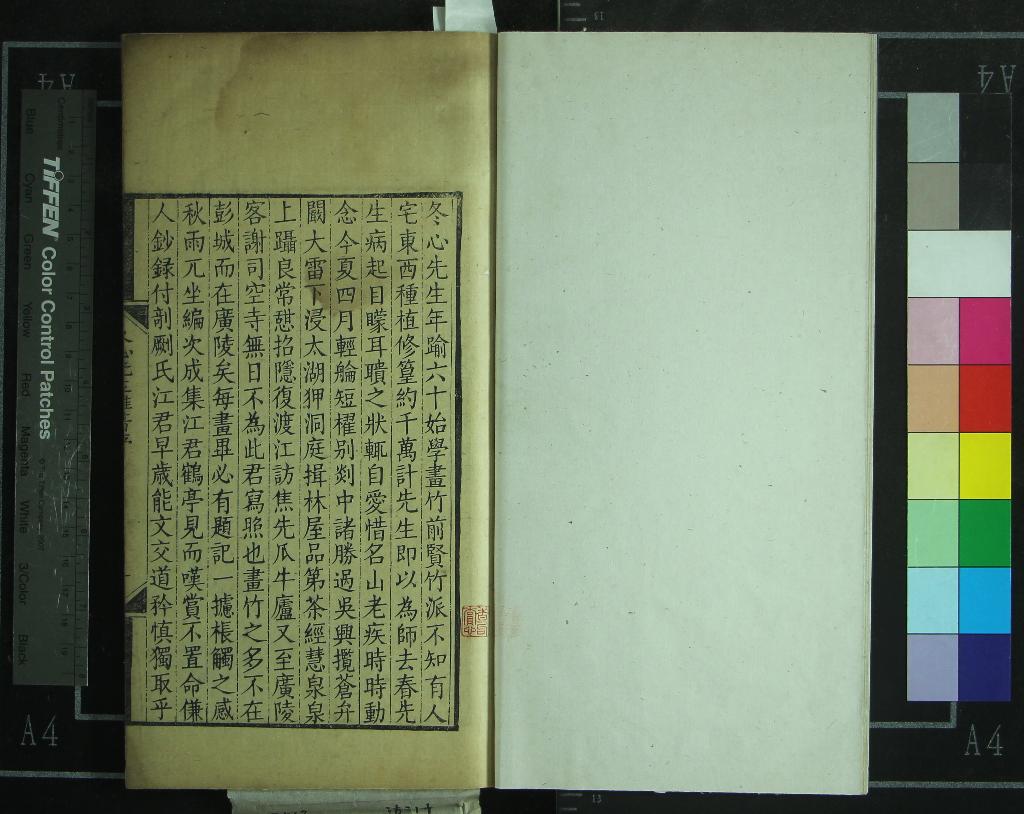 冬心先生年踰六十始學畫竹前賢竹派不知有人
宅東西種植修篁約千萬計先生即以為師去春先
生病起目矇耳聵之狀輒自愛惜名山老疾時時動
念今夏四月輕艙短櫂别剡中諸勝過吳興攬蒼弁
闞大雷下浸太湖狎洞庭揖林屋品第茶經慧泉泉
上躡良常憇招隱復渡江訪焦先瓜牛廬又至廣陵
客謝司空寺無日不為此君寫照也畫竹之多不在
彭城而在廣陵矣每畫畢必有題記一攄棖觸之感
秋雨兀坐編次成集江君鶴亭見而嘆賞不置命傔
人鈔録付剞劂氏江君早歲能文交道矜慎獨取乎
TIFFEN Color Control Patches
Centimetres
Blue
Cyan
Green
Yellow
Red
Magenta
White
3/Color
Black
A4
A4
A4
A4
13
13